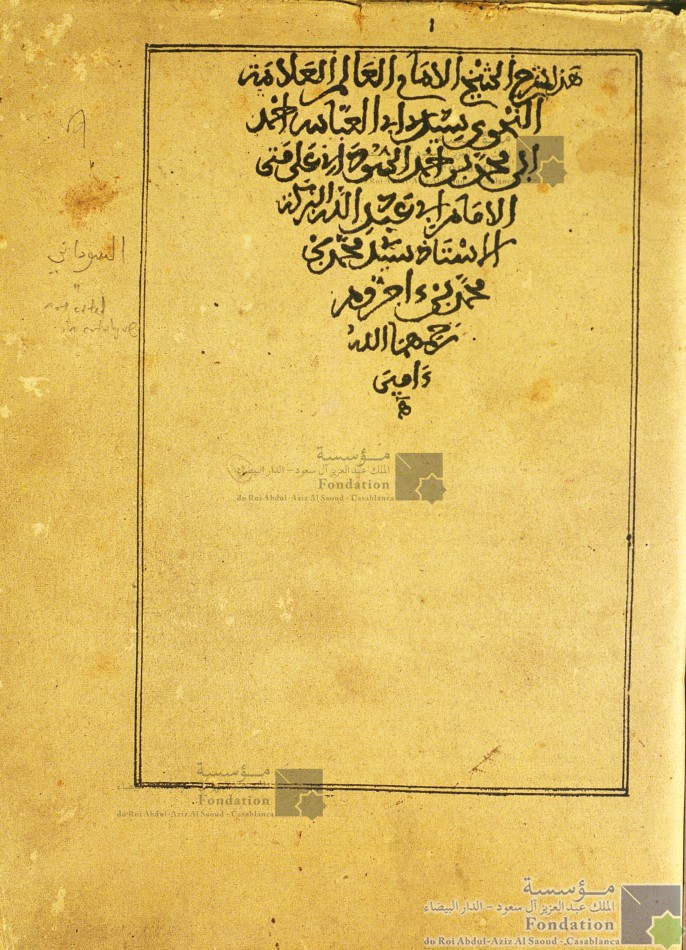 هذا شرح الشيخ الامام العالم العلامة
النحوي سيدي ابي العباس احمد
ابن محمد بن احمد السوداني على متن
الامام ابي عبد الله البركة
الاستاذ سيدي محمد بن
محمد بن ءاجروم
رحمهما الله
ءامين
السوداني
not edited
in catalogue
مؤسسة
الملك عبد العزيز آل سعود - الدار البيضاء
Fondation
du Roi Abdul-Aziz Al Saoud - Casablanca
مؤسسة
Fondation
du Roi Abdul-Aziz Al Saoud - Casablanca
مؤسسة
الملك عبد العزيز آل سعود - الدار البيضاء
Fondation
du Roi Abdul-Aziz Al Saoud - Casablanca